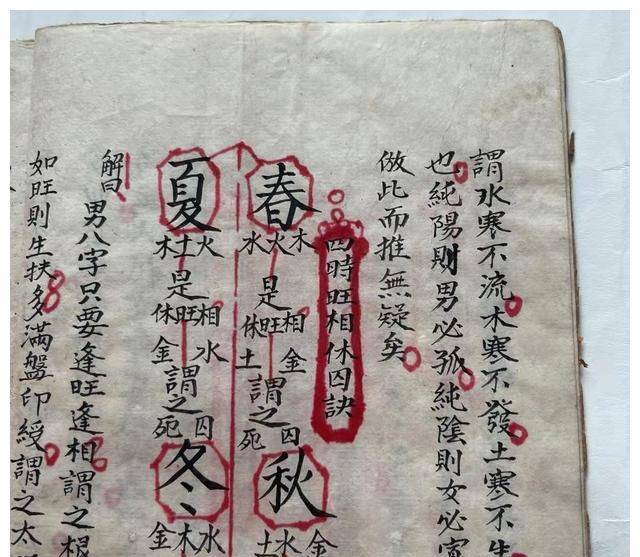 謂水寒不流木寒不發土寒不生
也純陽則男必孤純陰則女必
倣此而推無疑矣
四時旺相休囚訣
春
木火水
是
相旺休
金土
謂之
囚死
秋
金水土
夏
火土木
是
相旺休
水金
謂之
囚死
冬
水木金
解曰男八字只要逢旺逢相謂之根
如旺則生扶多滿盤印綬謂之太